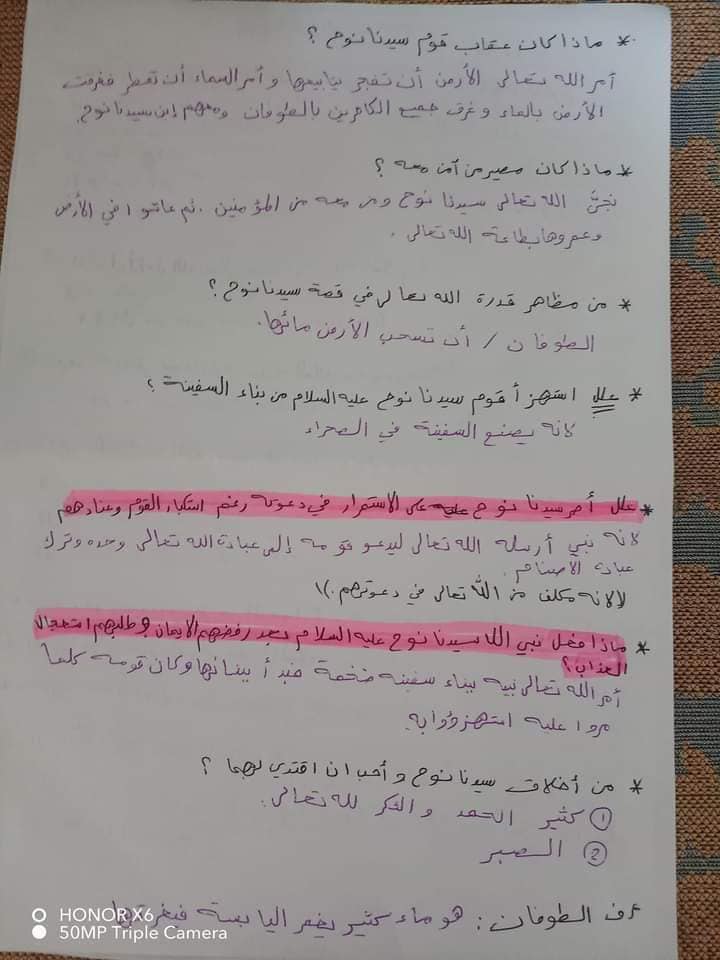 * ماذا كان عقاب قوم سيدنا نوح ؟
أمر الله تعالى الأرض أن تفجر ينابيعها و أمر السماء أن تمطر فغرقت
الأرض بالماء و غرق جميع الكافرين بالطوفان ومعهم ابن سيدنا نوح.
* ماذا كان مصير من آمن معه ؟
نجى الله تعالى سيدنا نوح ومن معه من المؤمنين . ثم عاشوا في الأرض
وعمروها بطاعة الله تعالى .
* من مظاهر قدرة الله تعالى في قصة سيدنا نوح ؟
الطوفان / أن تسحب الأرض مائها.
* علل استهزأ قوم سيدنا نوح عليه السلام من بناء السفينة ؟
لانه يصنع السفينة في الصحراء
* علل أصر سيدنا نوح على الاستمرار في دعوته رغم استكبار القوم وعنادهم
لانه نبي أرسله الله تعالى ليدعو قومه إلى عبادة الله تعالى وحده وترك
عبادة الاصنام .
لانه مكلف من الله تعالى في دعوتهم .
* ماذا فعل نبي الله سيدنا نوح عليه السلام بعد رفضهم الايمان وطلبهم استعجال
العذاب؟
أمر الله تعالى نبيه ببناء سفينه ضخمة فبدأ ببنائها وكان قومه كلما
مروا عليه استهزؤوا به
* من أخلاق سيدنا نوح و أحب ان اقتدي بهما ؟
① كثير الحمد و الشكر لله تعالى.
② الصبر
عرف الطوفان : هو ماء كثير يغمر اليابسة فيغرقها
HONOR X6
50MP Triple Camera